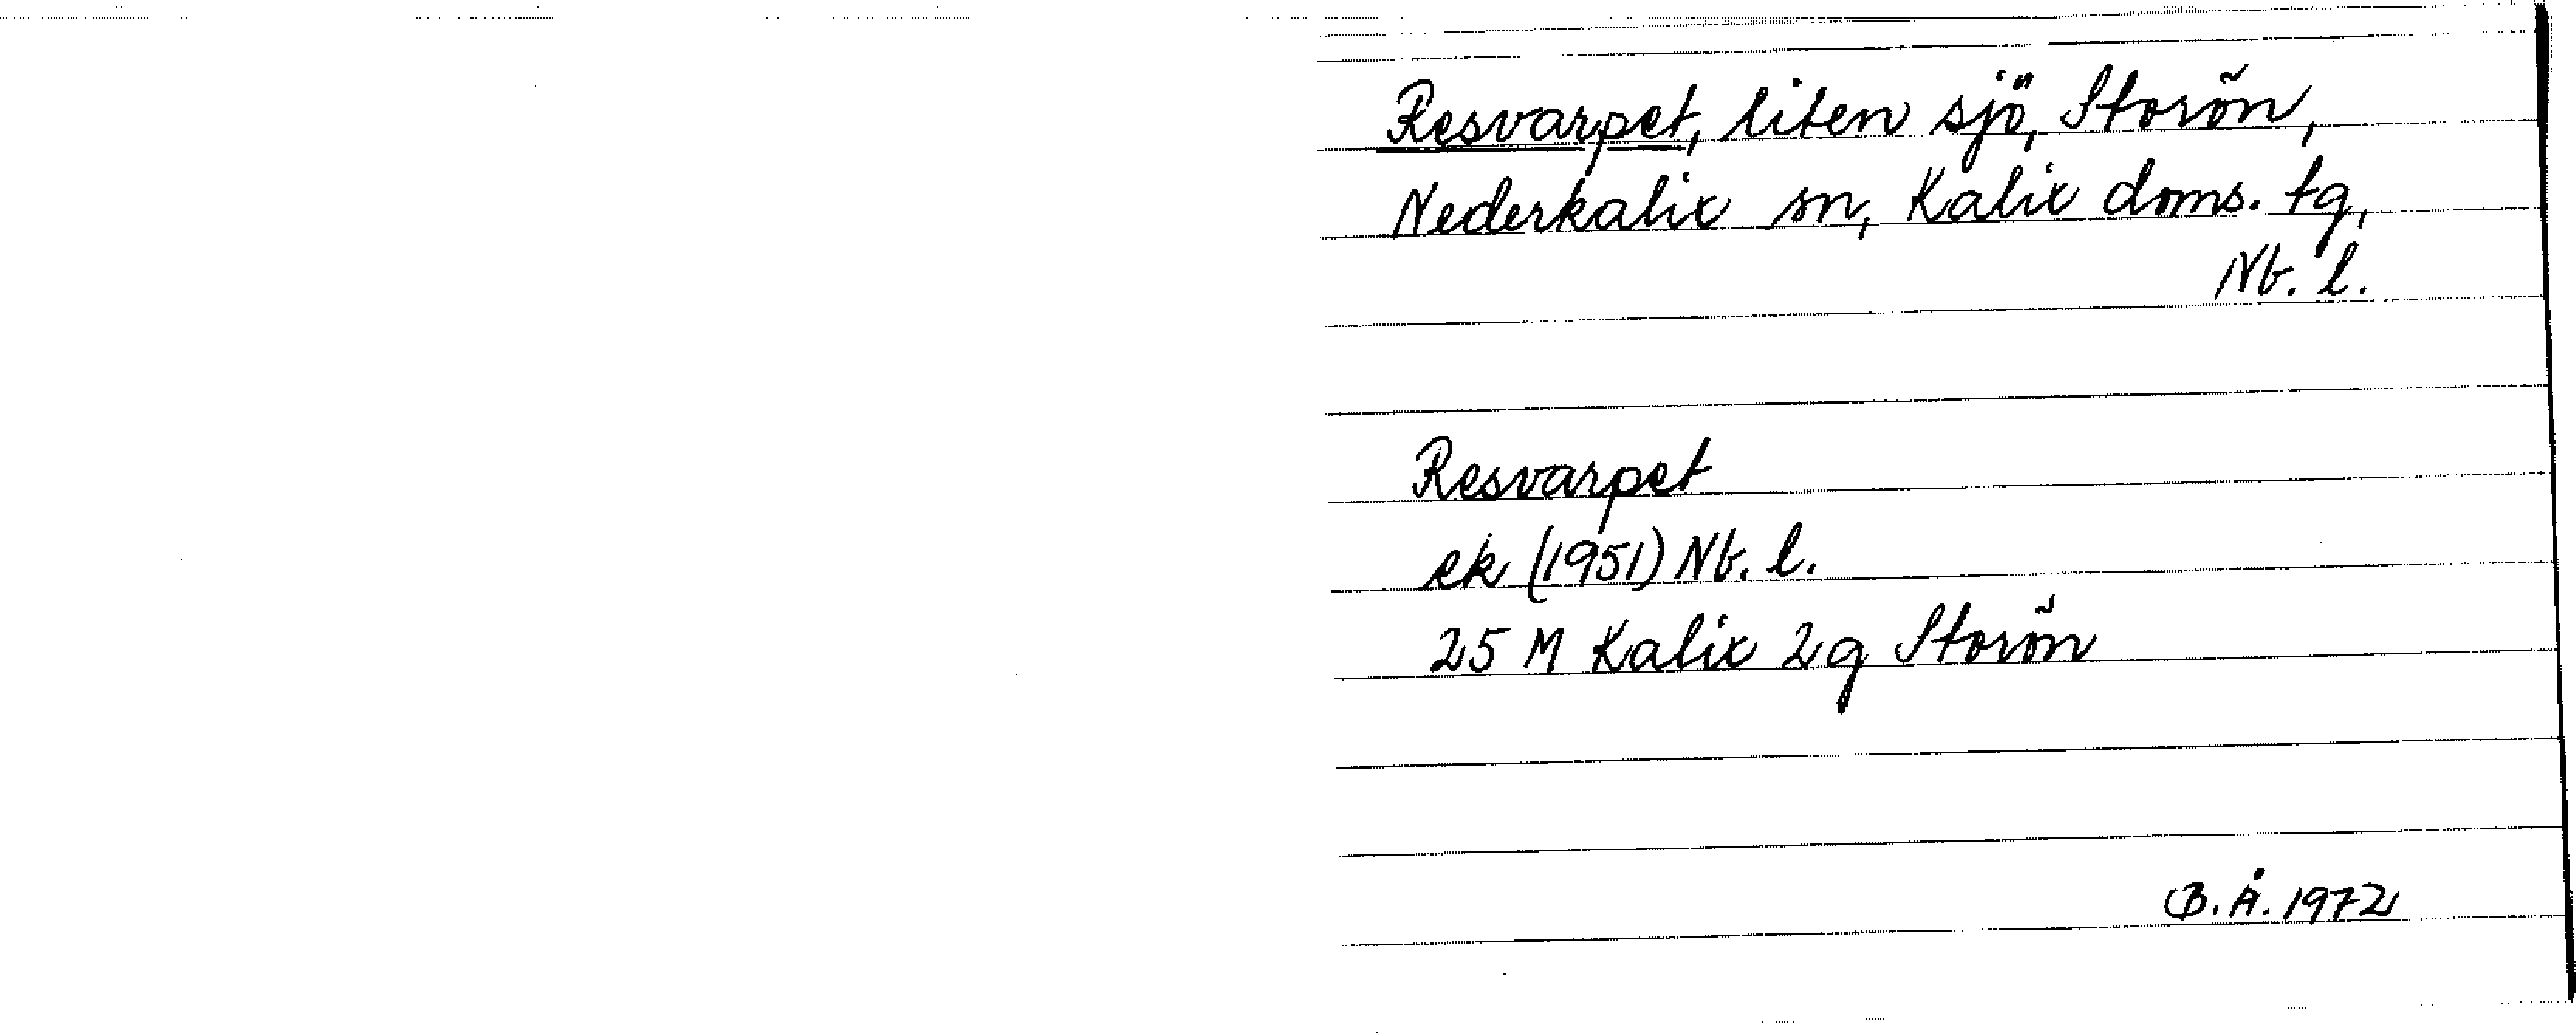 Resvarpet, liten sjö, Storön,
Nederkalix sn, Kalix doms. tg,
Nb. l.
Resvarpet
ek (1951) Nb. l.
25 M Kalix 2g Storön
B.Å. 1972